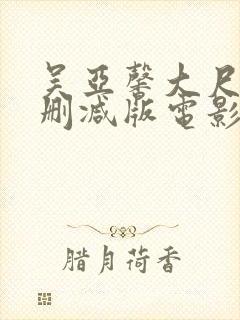 吴亚馨大尺
删减版电影
腊月荷香